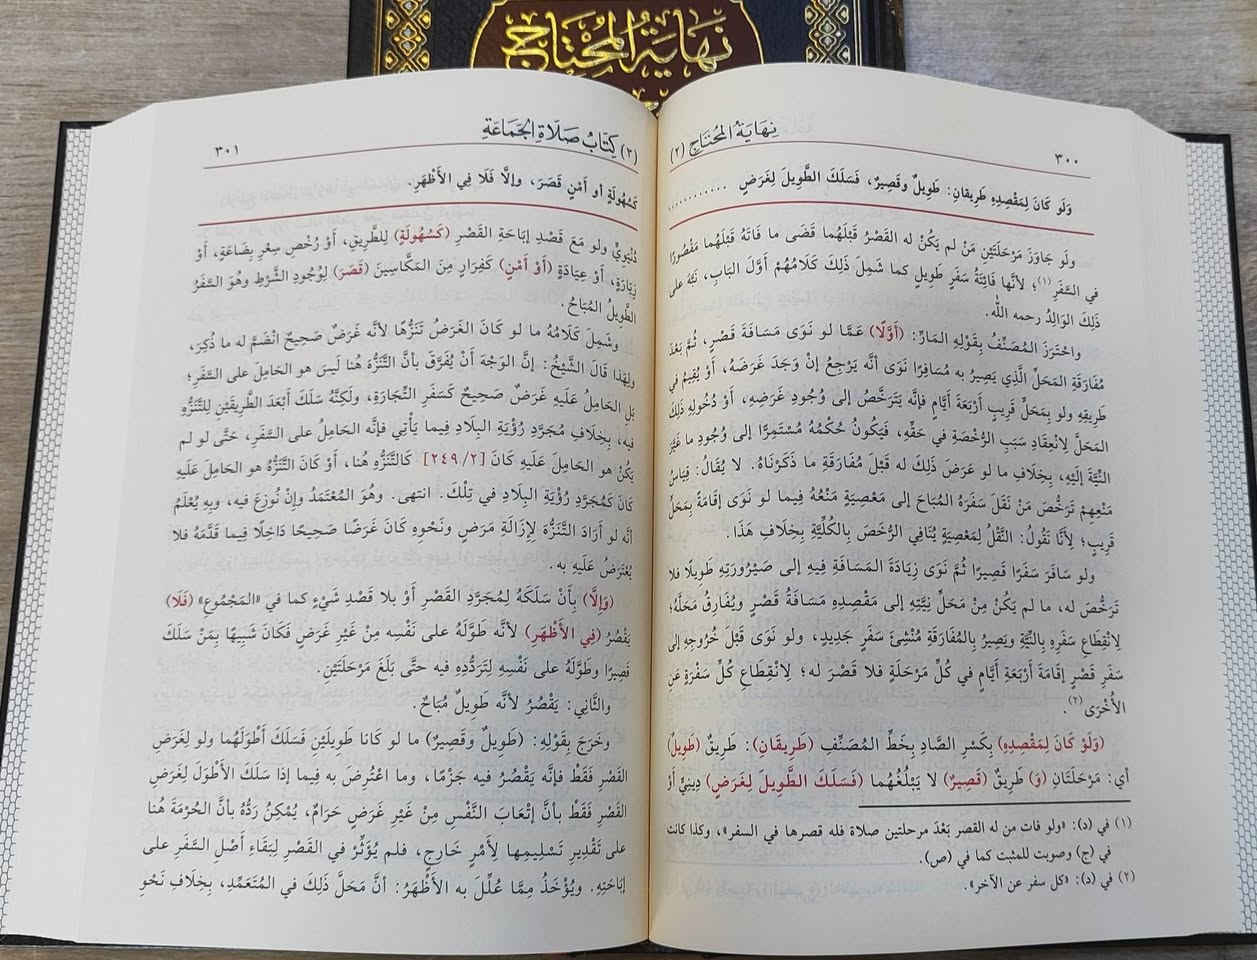 نهاية المحتاج
٣٠٠
نِهَايَةُ المُحْتَاجِ (٢)
وَلَو كَانَ لِمَقْصِدِهِ طَرِيقانِ: طَوِيلٌ وقَصِيرٌ، فَسَلَكَ الطَّوِيلَ لِغَرَضٍ ...........
ولو جَاوَزَ مَرْحَلَتَيْنِ مَنْ لم يَكُنْ له القَصْرُ قَبْلَهُما قَضَى ما فَاتَهُ قَبْلَهُما مَقْصُورًا
في السَّفَرِ (١)؛ لأنَّها فَائِتَةُ سَفَرٍ طَوِيلٍ كما شَمِلَ ذَلِكَ كَلَامُهُمْ أَوَّلَ البَابِ، نَبَّهَ على
ذَلِكَ الوَالِدُ رحمه الله.
واحْتَرَزَ المُصَنِّفُ بِقَوْلِهِ المَارِّ: (أَوَّلًا) عَمَّا لو نَوَى مَسَافَةَ قَصْرٍ، ثُمَّ بَعْدَ
مُفَارَقَةِ المَحَلِّ الَّذِي يَصِيرُ به مُسَافِرًا نَوَى أنَّه يَرْجِعُ إنْ وَجَدَ غَرَضَهُ، أَوْ يُقِيمُ في
طَرِيقِهِ ولو بِمَحَلٍّ قَرِيبٍ أَرْبَعَةَ أَيَّامٍ فإنَّه يَتَرَخَّصُ إلى وُجُودِ غَرَضِهِ، أو دُخُولِهِ ذَلِكَ
المَحَلَّ لِانْعِقَادِ سَبَبِ الرُّخْصَةِ في حَقِّهِ، فَيَكُونُ حُكْمُهُ مُسْتَمِرًّا إلى وُجُودِ ما غَيَّرَ
النِّيَّةَ إلَيْهِ، بِخِلَافِ ما لو عَرَضَ ذَلِكَ له قَبْلَ مُفَارَقَةِ ما ذَكَرْنَاهُ. لا يُقَالُ: قِيَاسُ
مَنْعِهِم تَرَخُّصَ مَنْ نَقَلَ سَفَرَهُ المُبَاحَ إلى مَعْصِيَةٍ مَنْعُهُ فِيما لو نَوَى إقَامَةً بِمَحَلٍّ
قَرِيبٍ؛ لِأنَّا نَقُولُ: النَّقْلُ لِمَعْصِيَةٍ يُنَافِي الرُّخَصَ بِالكُلِّيَّةِ بِخِلَافِ هَذَا.
ولو سَافَرَ سَفَرًا قَصِيرًا ثُمَّ نَوَى زِيَادَةَ المَسَافَةِ فِيهِ إلى صَيْرُورَتِهِ طَوِيلًا فلا
تَرَخُّصَ له، ما لم يَكُنْ مِنْ مَحَلِّ نِيَّتِهِ إلى مَقْصِدِهِ مَسَافَةُ قَصْرٍ ويُفَارِقُ مَحَلَّهُ؛
لِانْقِطَاعِ سَفَرِهِ بِالنِّيَّةِ ويَصِيرُ بِالمُفَارَقَةِ مُنْشِئَ سَفَرٍ جَدِيدٍ، ولو نَوَى قَبْلَ خُرُوجِهِ إلى
سَفَرِ قَصْرٍ إقَامَةَ أَرْبَعَةِ أَيَّامٍ في كُلِّ مَرْحَلَةٍ فلا قَصْرَ له؛ لِانْقِطَاعِ كُلِّ سَفْرَةٍ عَنِ
الأُخْرَى (٢).
(وَلَوْ كَانَ لِمَقْصِدِهِ) بِكَسْرِ الصَّادِ بِخَطِّ المُصَنِّفِ (طَرِيقَانِ): طَرِيقٌ (طَوِيلٌ)
أي: مَرْحَلَتَانِ (وَ) طَرِيقٌ (قَصِيرٌ) لا يَبْلُغُهُما (فَسَلَكَ الطَّوِيلَ لِغَرَضٍ) دِينِيٍّ أَوْ
(١) في (د): «ولو فات من له القصر بَعْدَ مرحلتين صلاة فله قصرها في السفر»، وكذا كانت
في (ج) وصوبت للمثبت كما في (ص).
(٢) في (د): «كل سفر عن الآخر».
(٢) كِتَابُ صَلَاةِ الجَمَاعَةِ
٣٠١
كَسُهُولَةٍ أو أَمْنٍ قَصَرَ، وإلَّا فَلَا فِي الأَظْهَرِ.
دُنْيَوِيٍّ ولو مَعَ قَصْدِ إبَاحَةِ القَصْرِ (كَسُهُولَةٍ) لِلطَّرِيقِ، أَوْ رُخْصِ سِعْرِ بِضَاعَةٍ، أَوْ
زِيَارَةٍ، أَوْ عِيَادَةٍ (أَوْ أَمْنٍ) كَفِرَارٍ مِنَ المَكَّاسِينَ (قَصَرَ) لِوُجُودِ الشَّرْطِ وهُوَ السَّفَرُ
الطَّوِيلُ المُبَاحُ.
وشَمِلَ كَلَامُهُ ما لو كَانَ الغَرَضُ تَنَزُّهًا لأنَّه غَرَضٌ صَحِيحٌ انْضَمَّ له ما ذُكِرَ،
ولِهَذا قَالَ الشَّيْخُ: إنَّ الوَجْهَ أَنْ يُفَرَّقَ بأنَّ التَّنَزُّهَ هُنا لَيسَ هو الحَامِلَ على السَّفَرِ؛
بَلِ الحَامِلُ عَلَيهِ غَرَضٌ صَحِيحٌ كَسَفَرِ التِّجَارَةِ، ولَكِنَّهُ سَلَكَ أَبْعَدَ الطَّرِيقَيْنِ لِلتَّنَزُّهِ
فيه، بِخِلَافِ مُجَرَّدِ رُؤْيَةِ البِلَادِ فِيما يَأْتِي فإنَّه الحَامِلُ على السَّفَرِ، حَتَّى لو لم
يَكُنْ هو الحَامِلَ عَلَيهِ كَانَ [٢/ ٢٤٩] كَالتَّنَزُّهِ هُنا، أَوْ كَانَ التَّنَزُّهُ هو الحَامِلَ عَلَيهِ
كَانَ كَمُجَرَّدِ رُؤْيَةِ البِلَادِ في تِلْكَ. انتهى. وهُوَ المُعْتَمَدُ وإنْ نُوزِعَ فيه، وبِهِ يُعْلَمُ
أنَّه لو أَرَادَ التَّنَزُّهَ لإزَالَةِ مَرَضٍ ونَحْوِهِ كَانَ غَرَضًا صَحِيحًا دَاخِلًا فِيما قَدَّمَهُ فلا
يُعْتَرَضُ عَلَيهِ به.
(وَإِلَّا) بِأَنْ سَلَكَهُ لِمُجَرَّدِ القَصْرِ أَوْ بلا قَصْدِ شَيْءٍ كما في «المَجْمُوعِ» (فَلَا)
يَقْصُرُ (فِي الأَظْهَرِ) لأنَّه طَوَّلَهُ على نَفْسِهِ مِنْ غَيرِ غَرَضٍ فَكَانَ شَبِيهًا بِمَنْ سَلَكَ
قَصِيرًا وطَوَّلَهُ على نَفْسِهِ لِتَرَدُّدِهِ فيه حتَّى بَلَغَ مَرْحَلَتَيْنِ.
والثَّانِي: يَقْصُرُ لأنَّه طَوِيلٌ مُبَاحٌ.
وخَرَجَ بِقَوْلِهِ: (طَوِيلٌ وقَصِيرٌ) ما لو كَانا طَوِيلَيْنِ فَسَلَكَ أَطْوَلَهُما ولو لِغَرَضِ
القَصْرِ فَقَطْ فإنَّه يَقْصُرُ فيه جَزْمًا، وما اعْتُرِضَ به فِيما إذا سَلَكَ الأَطْوَلَ لِغَرَضِ
القَصْرِ فَقَطْ بأنَّ إتْعَابَ النَّفْسِ مِنْ غَيرِ غَرَضٍ حَرَامٌ، يُمْكِنُ رَدُّهُ بأنَّ الحُرْمَةَ هُنا
على تَقْدِيرِ تَسْلِيمِها لِأَمْرٍ خَارِجٍ، فلم يُؤَثِّرْ في القَصْرِ لِبَقَاءِ أَصْلِ السَّفَرِ على
إبَاحَتِهِ. ويُؤْخَذُ مِمَّا عُلِّلَ به الأَظْهَرُ: أنَّ مَحَلَّ ذَلِكَ في المُتَعَمِّدِ، بِخِلَافِ نَحْوِ